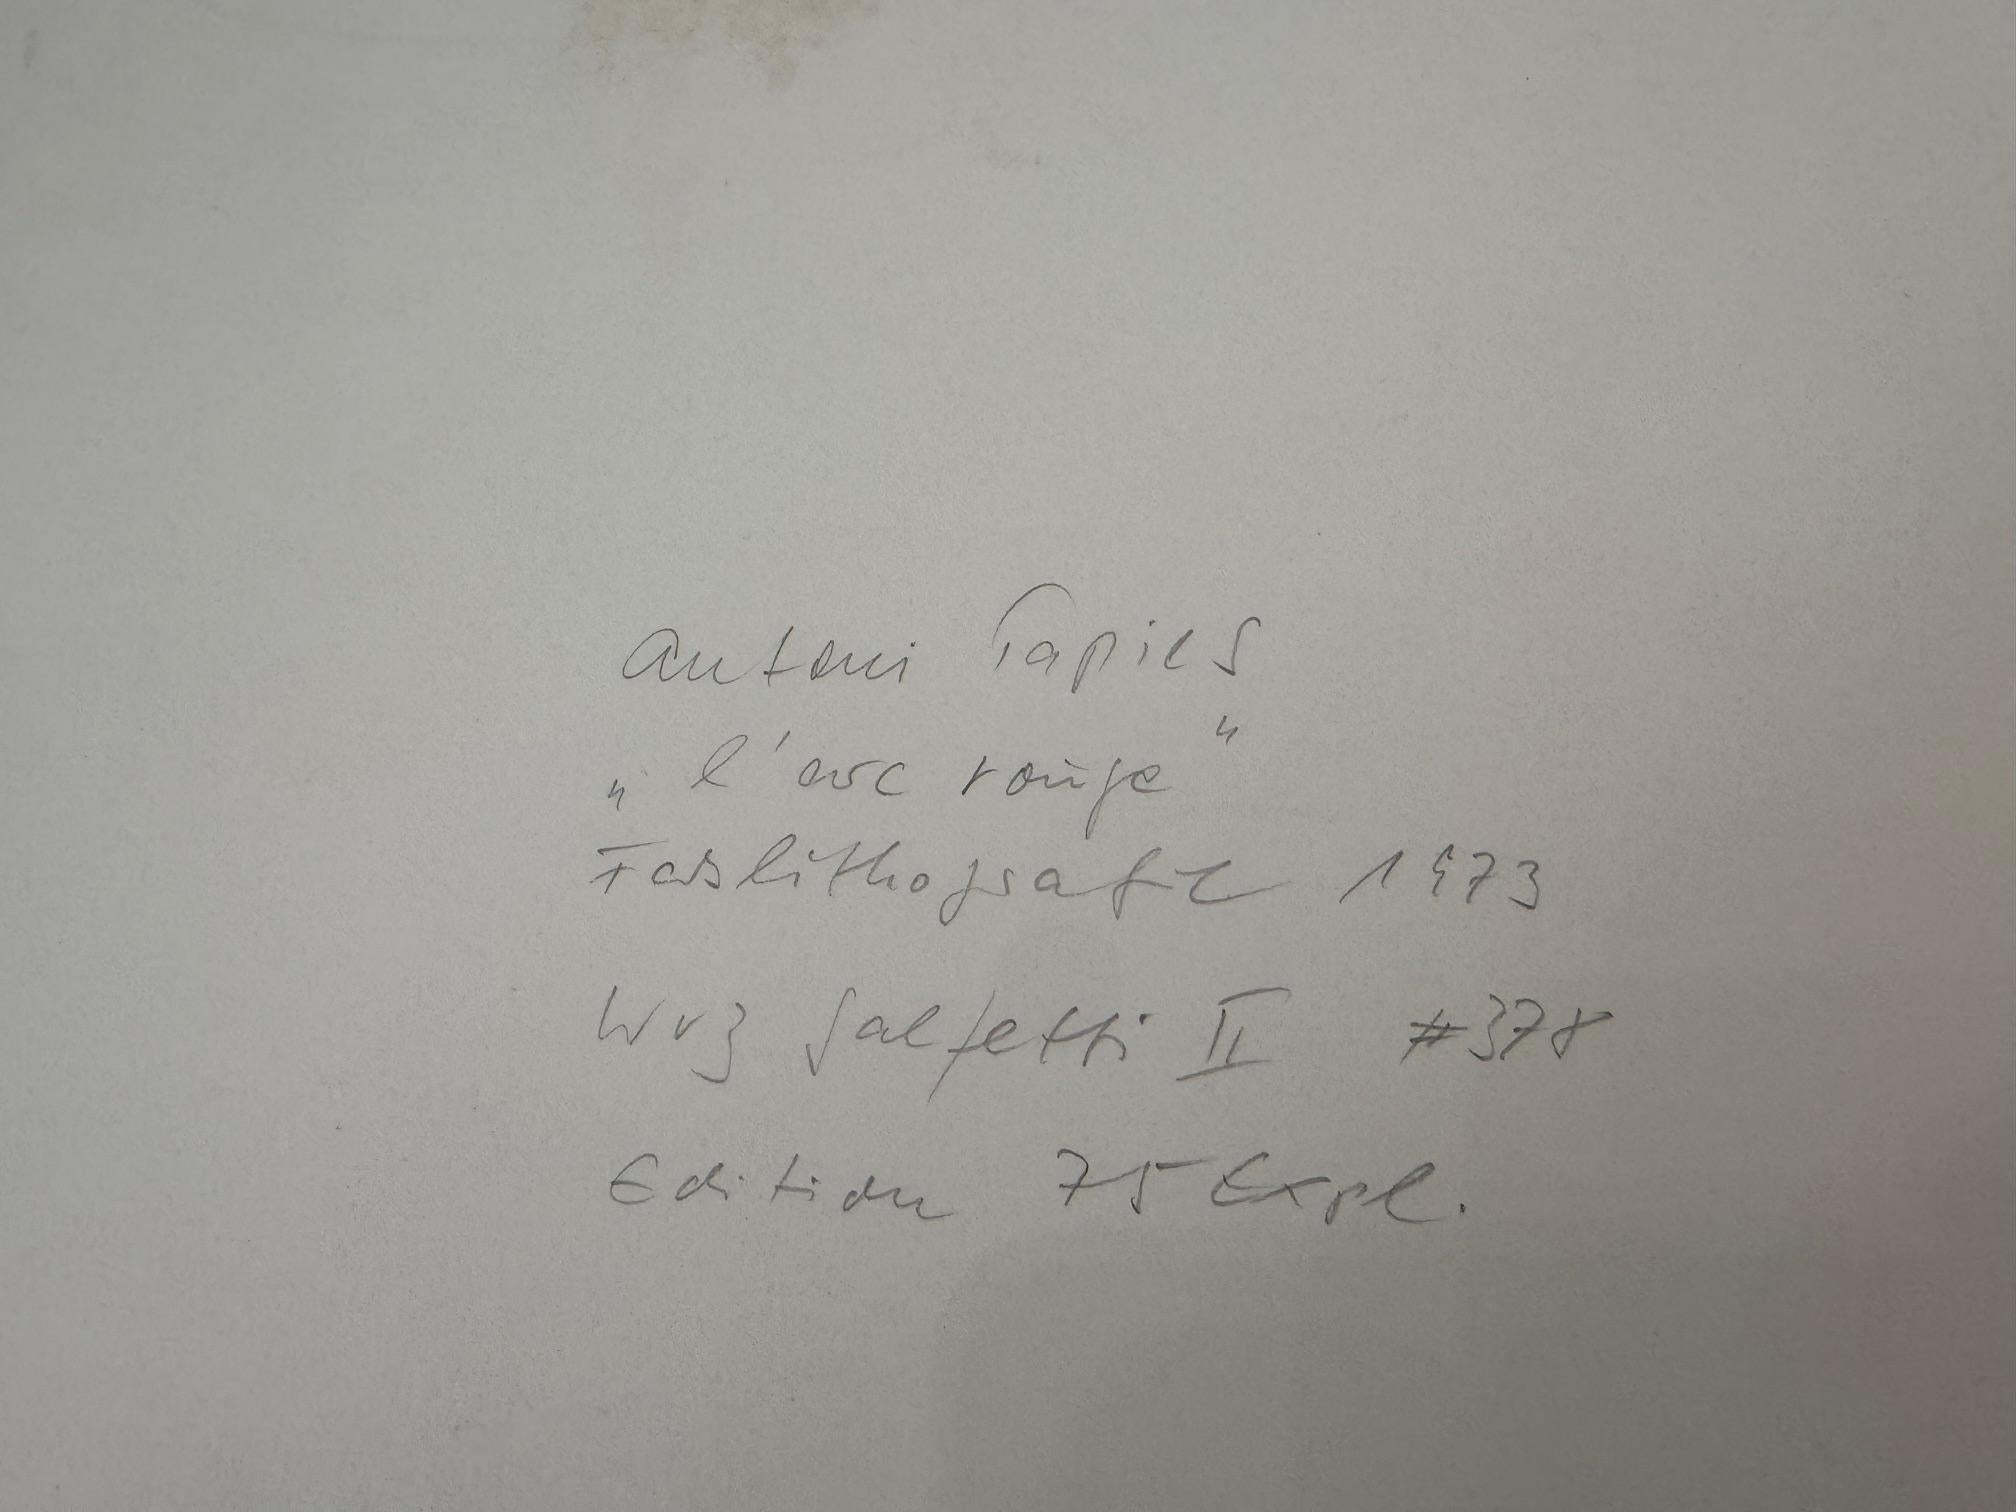 Antoni Tapies
„l'arc rouge"
Farblithografie 1973
WVZ Galfetti II #378
Edition 75 Expl.